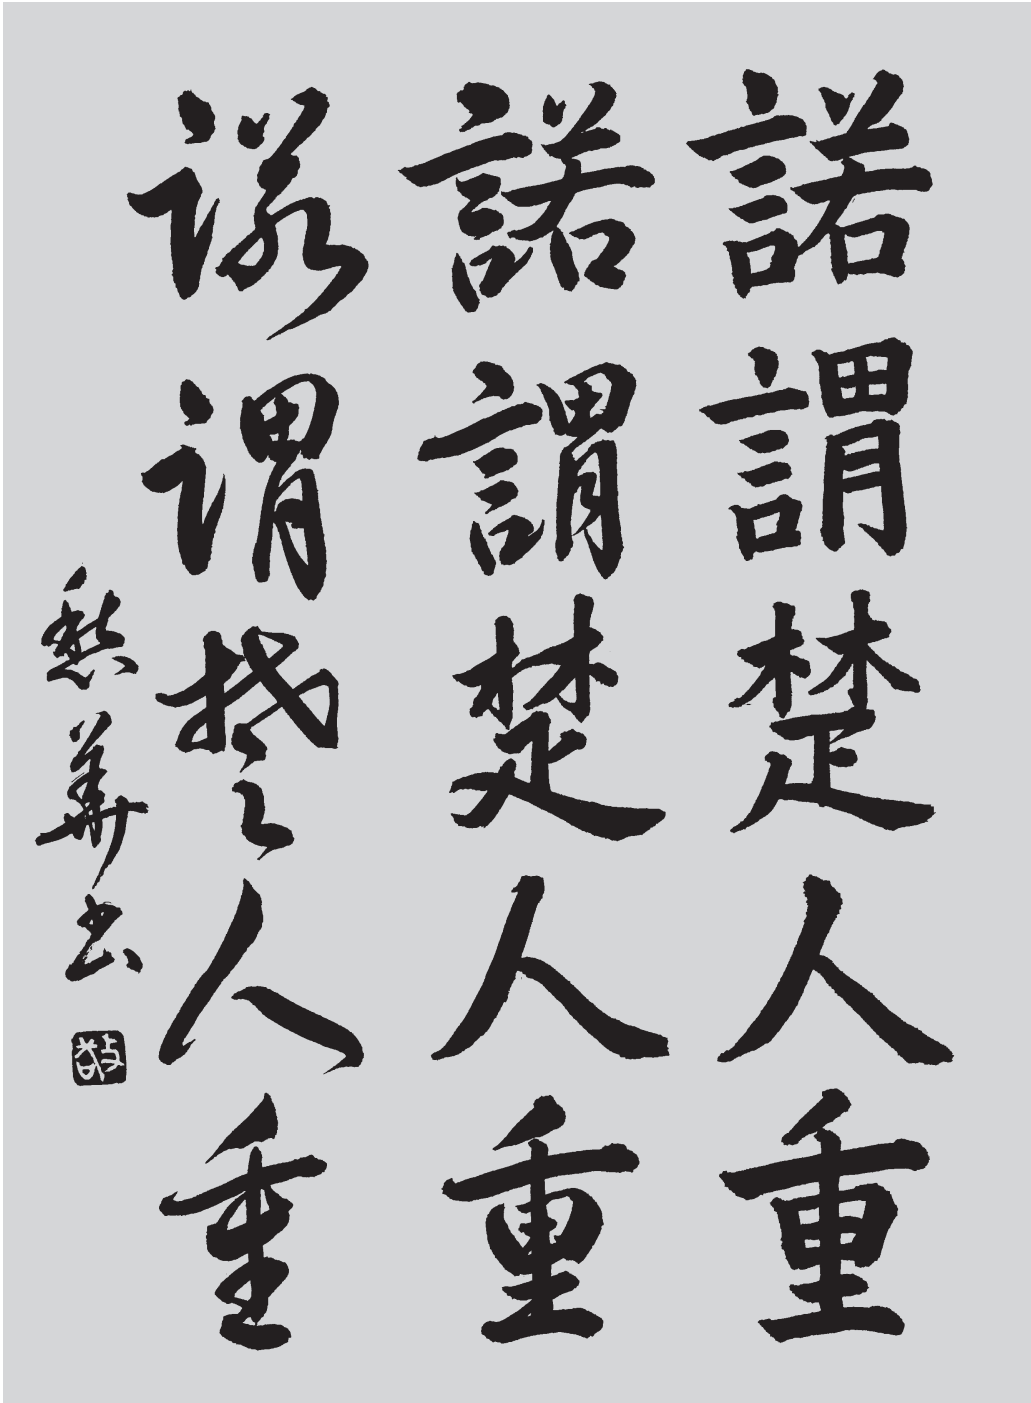 諾謂楚人重
諾謂楚人重
諾謂楚人重
愁華書
敬